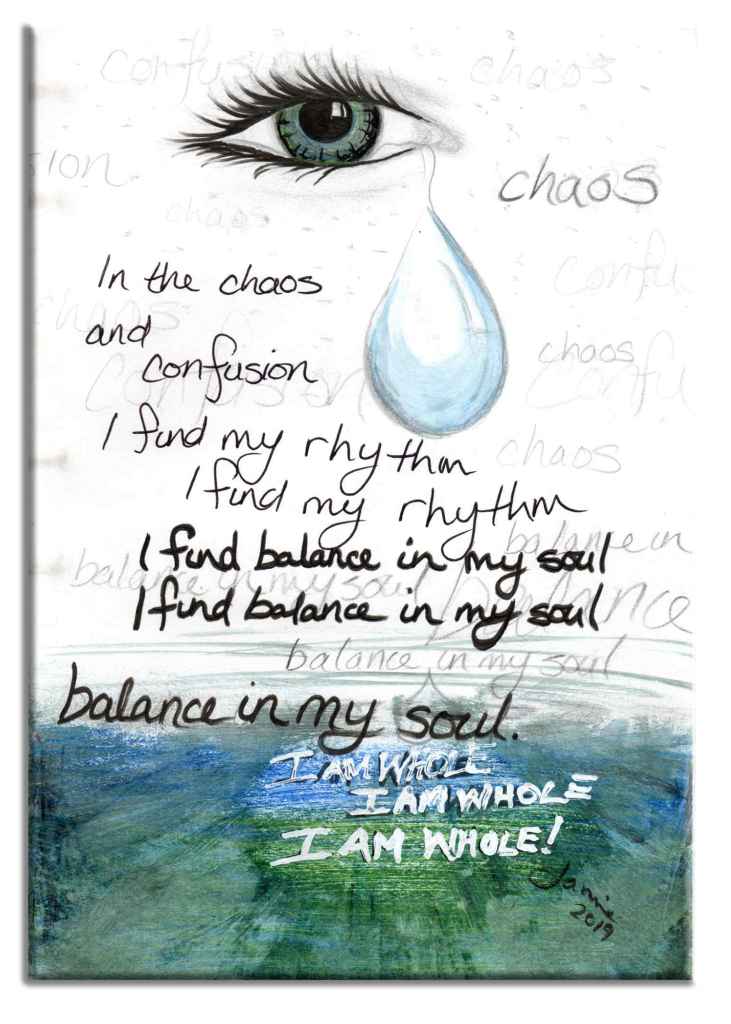 confusion chaos
sion
chaos
chaos
In the chaos
confu
chaos
and
chaos
confusion
confusion
confu
I find my rhythm
chaos
I find my rhythm
balance in
I find balance in my soul
balance in my soul
balance
I find balance in my soul
balance in my soul
balance in my soul.
I AM WHOLE
I AM WHOLE
I AM WHOLE!
Jamie
2019